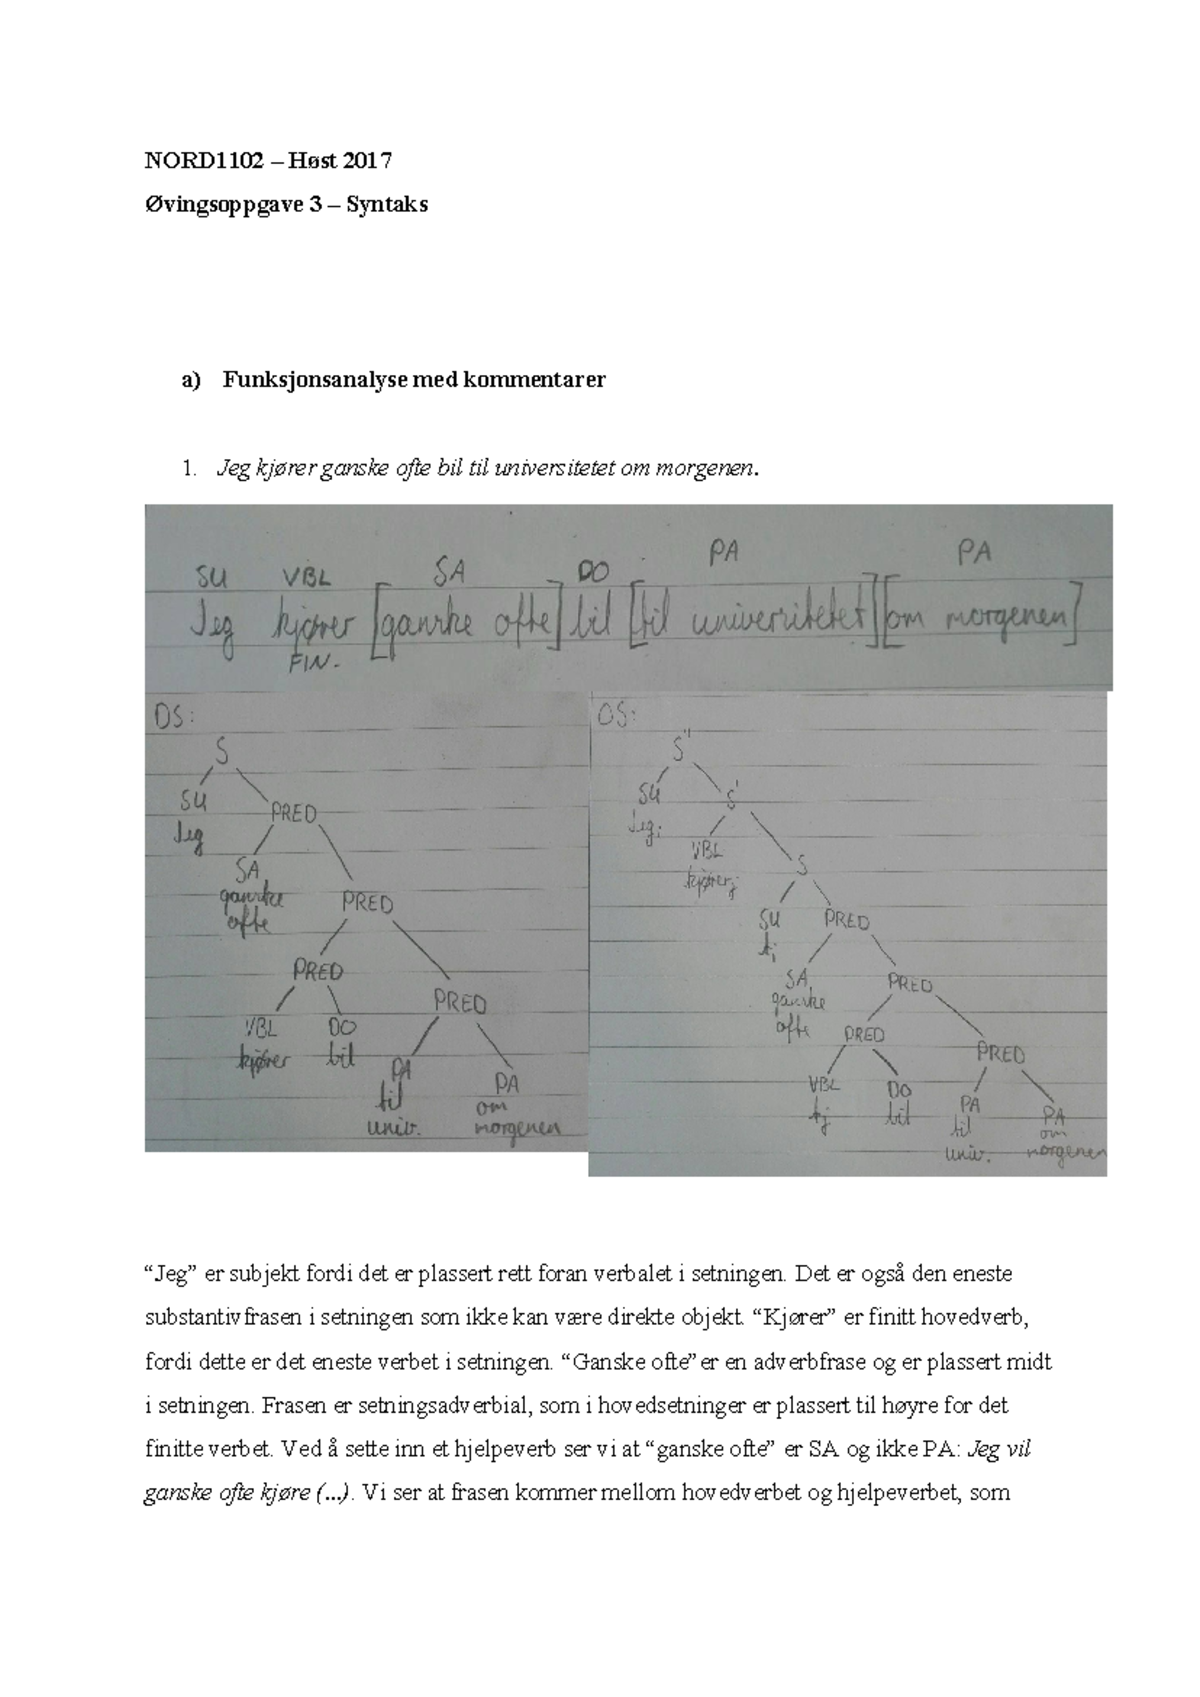 NORD1102 – Høst 2017
Øvingsoppgave 3 – Syntaks
a) Funksjonsanalyse med kommentarer
1. Jeg kjører ganske ofte bil til universitetet om morgenen.
SU VBL SA DO PA PA
Jeg kjører [ganske ofte] bil [til universitetet] [om morgenen]
FIN.
DS:
S
SU PRED
Jeg
SA PRED
ganske
ofte
PRED PRED
VBL DO PA PA
kjører bil til om
univ. morgenen
OS:
S''
SU S'
Jeg i
VBL S
kjører j
SU PRED
t i
SA PRED
ganske
ofte
PRED PRED
VBL DO PA PA
tj bil til om
univ. morgenen
“Jeg” er subjekt fordi det er plassert rett foran verbalet i setningen. Det er også den eneste
substantivfrasen i setningen som ikke kan være direkte objekt. “Kjører” er finitt hovedverb,
fordi dette er det eneste verbet i setningen. “Ganske ofte” er en adverbfrase og er plassert midt
i setningen. Frasen er setningsadverbial, som i hovedsetninger er plassert til høyre for det
finitte verbet. Ved å sette inn et hjelpeverb ser vi at “ganske ofte” er SA og ikke PA: Jeg vil
ganske ofte kjøre (...). Vi ser at frasen kommer mellom hovedverbet og hjelpeverbet, som